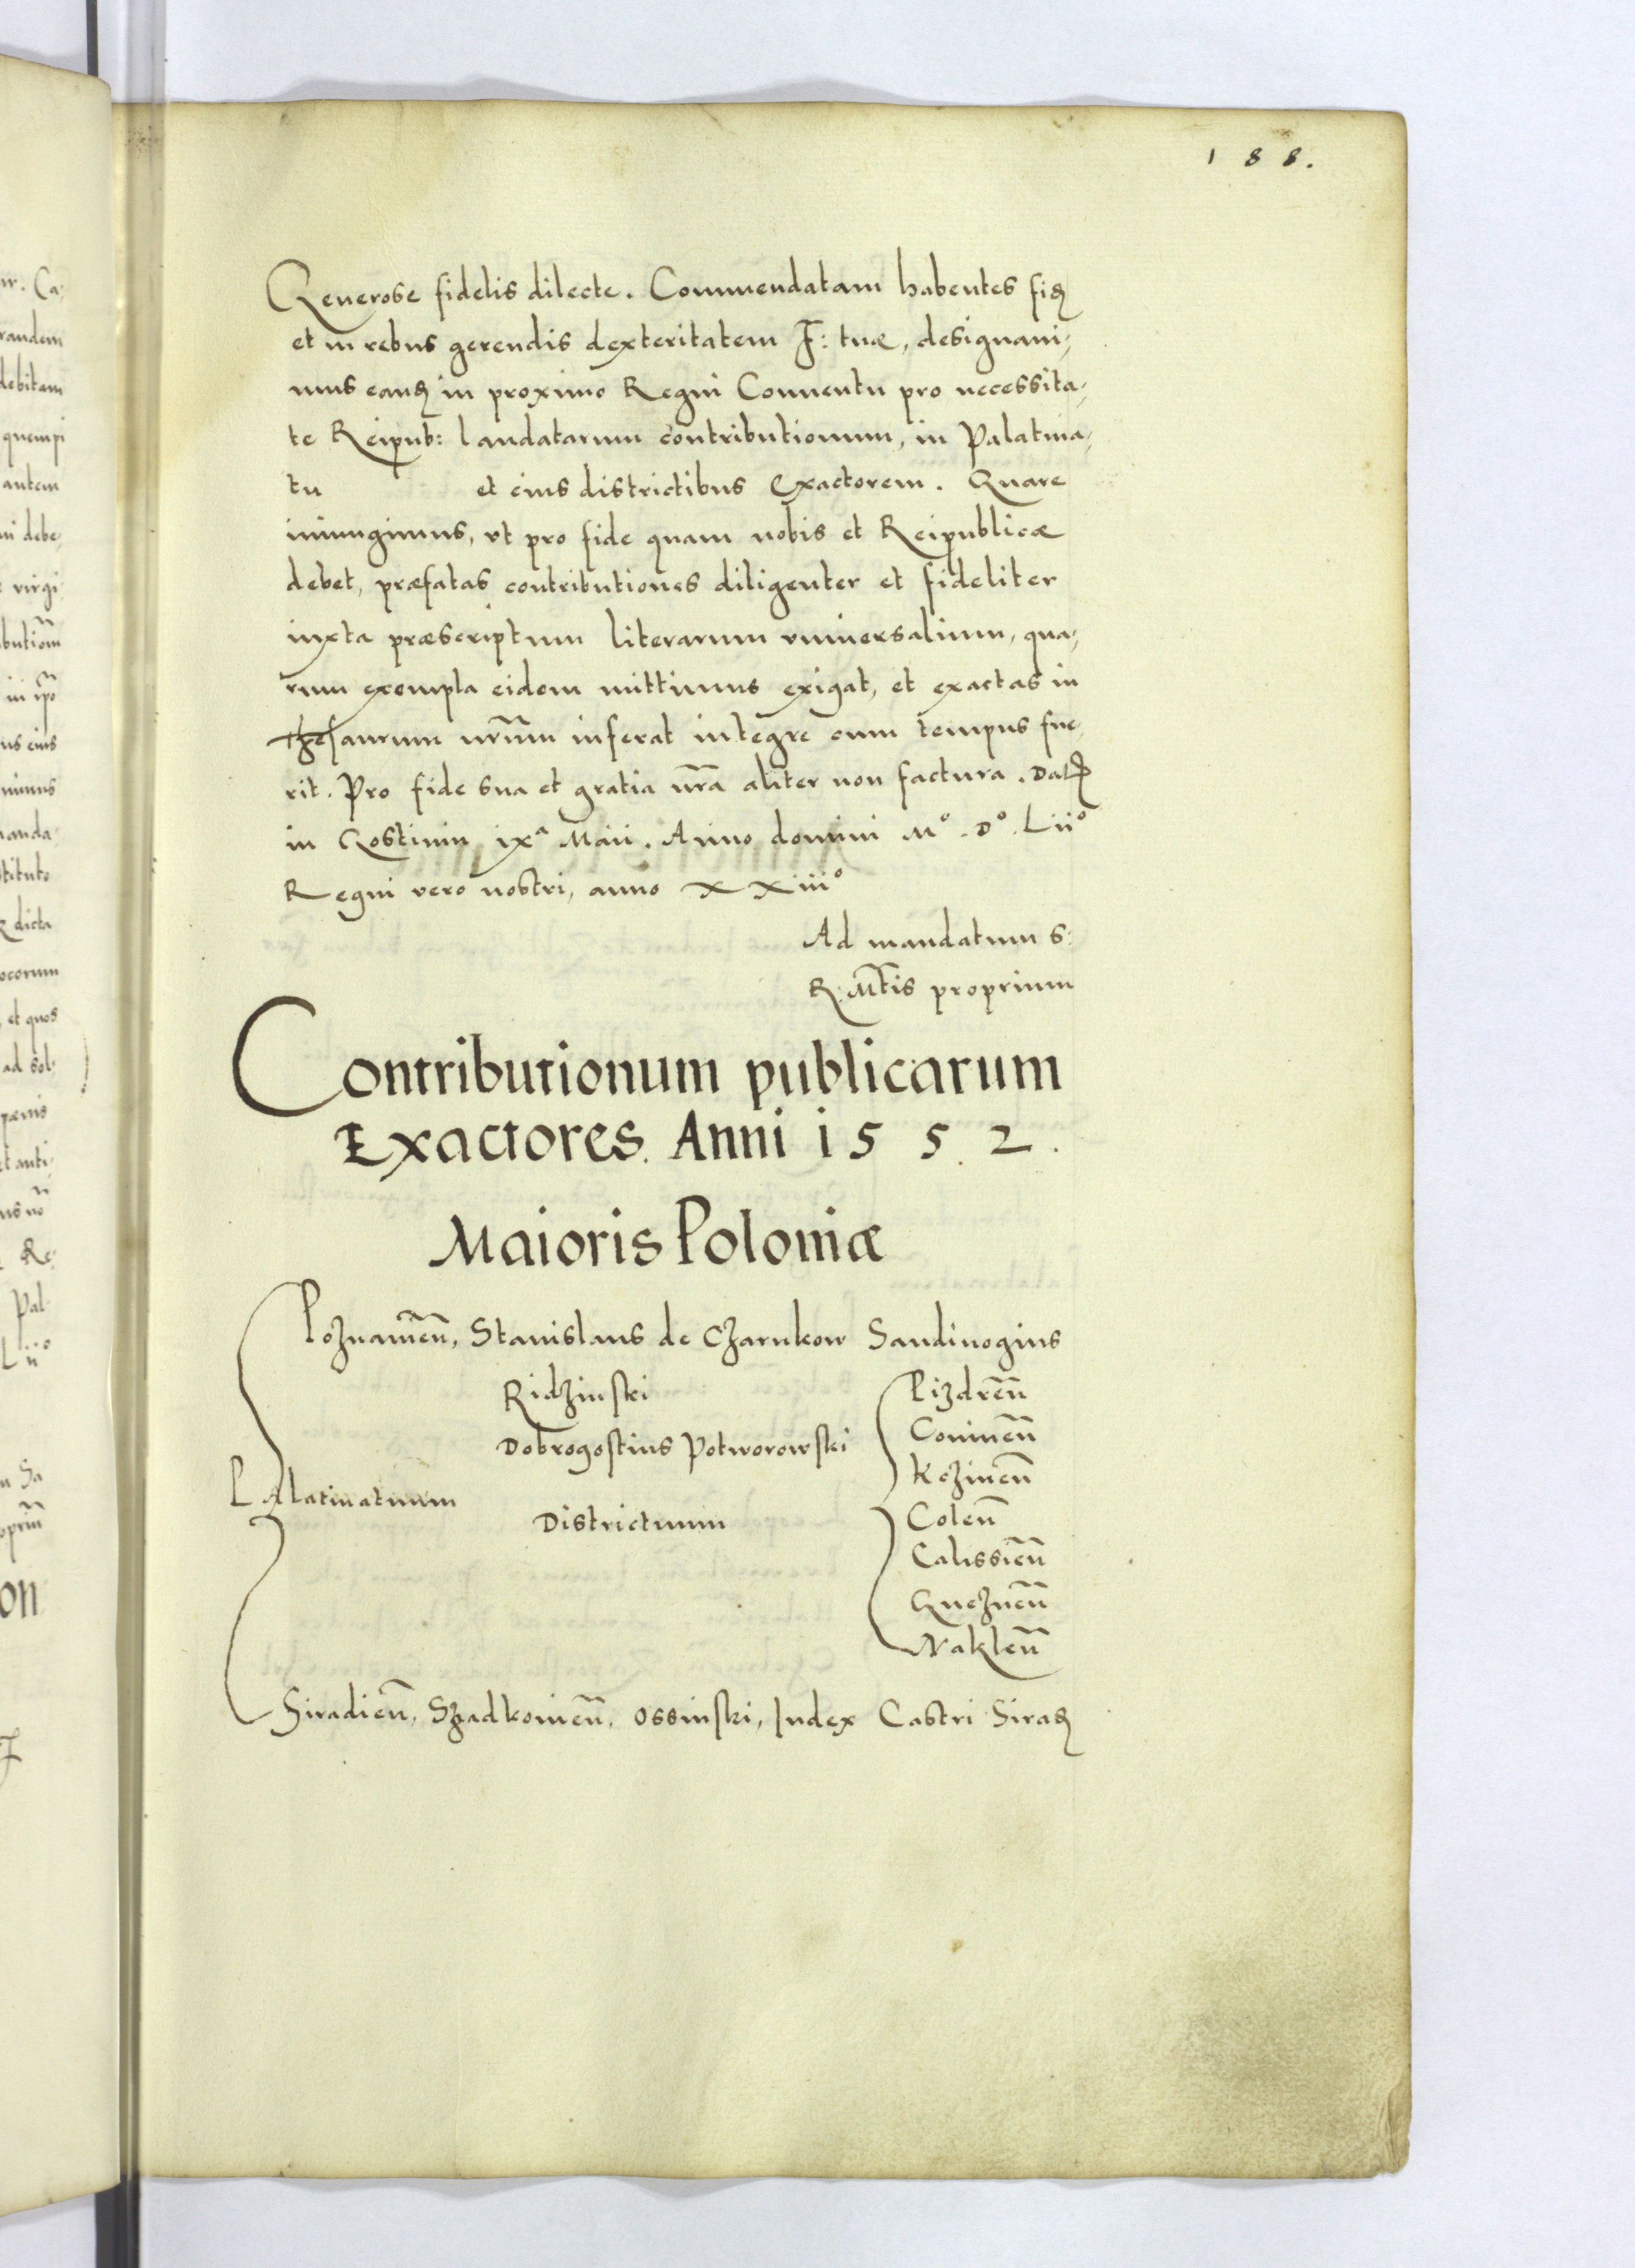 188.
Generose fidelis dilecte. Commendatam habentes fidem
et in rebus gerendis dexteritatem F: tuæ, designaui-
mus eandem in proximo Regni Conuentu pro necessita-
te Reipub: laudatarum contributionum, in Palatina-
tu et eius districtibus Exactorem. Quare
iniungimus, vt pro fide quam nobis et Reipublicæ
debet, præfatas contributiones diligenter et fideliter
iuxta præscriptum literarum vniuersalium, qua-
rum exempla eidem mittimus exigat, et exactas in
Thesaurum nr̃um inferat integre cum tempus fue-
rit. Pro fide sua et gratia nr̃a aliter non factura. Dat
in Gostinin ixª Maii. Anno domini Mº. Dº. Liiº
Regni vero nostri, anno XXiiiº
Ad mandatum S:
R. Mt̃is proprium
Contributionum publicarum
Exactores. Anni 1552.
Maioris Poloniæ
Poznanień, Stanislaus de Czarnkow Sandiuogius
Ridzinski
Dobrogostius Potworowski
Palatinatuum
Districtuum
Pizdreñ
Conineñ
Kczineñ
Coleñ
Calissieñ
Gnezneñ
Nakleñ
Siradieñ, Szadkouieñ, Ossinski, Iudex Castri Sirad